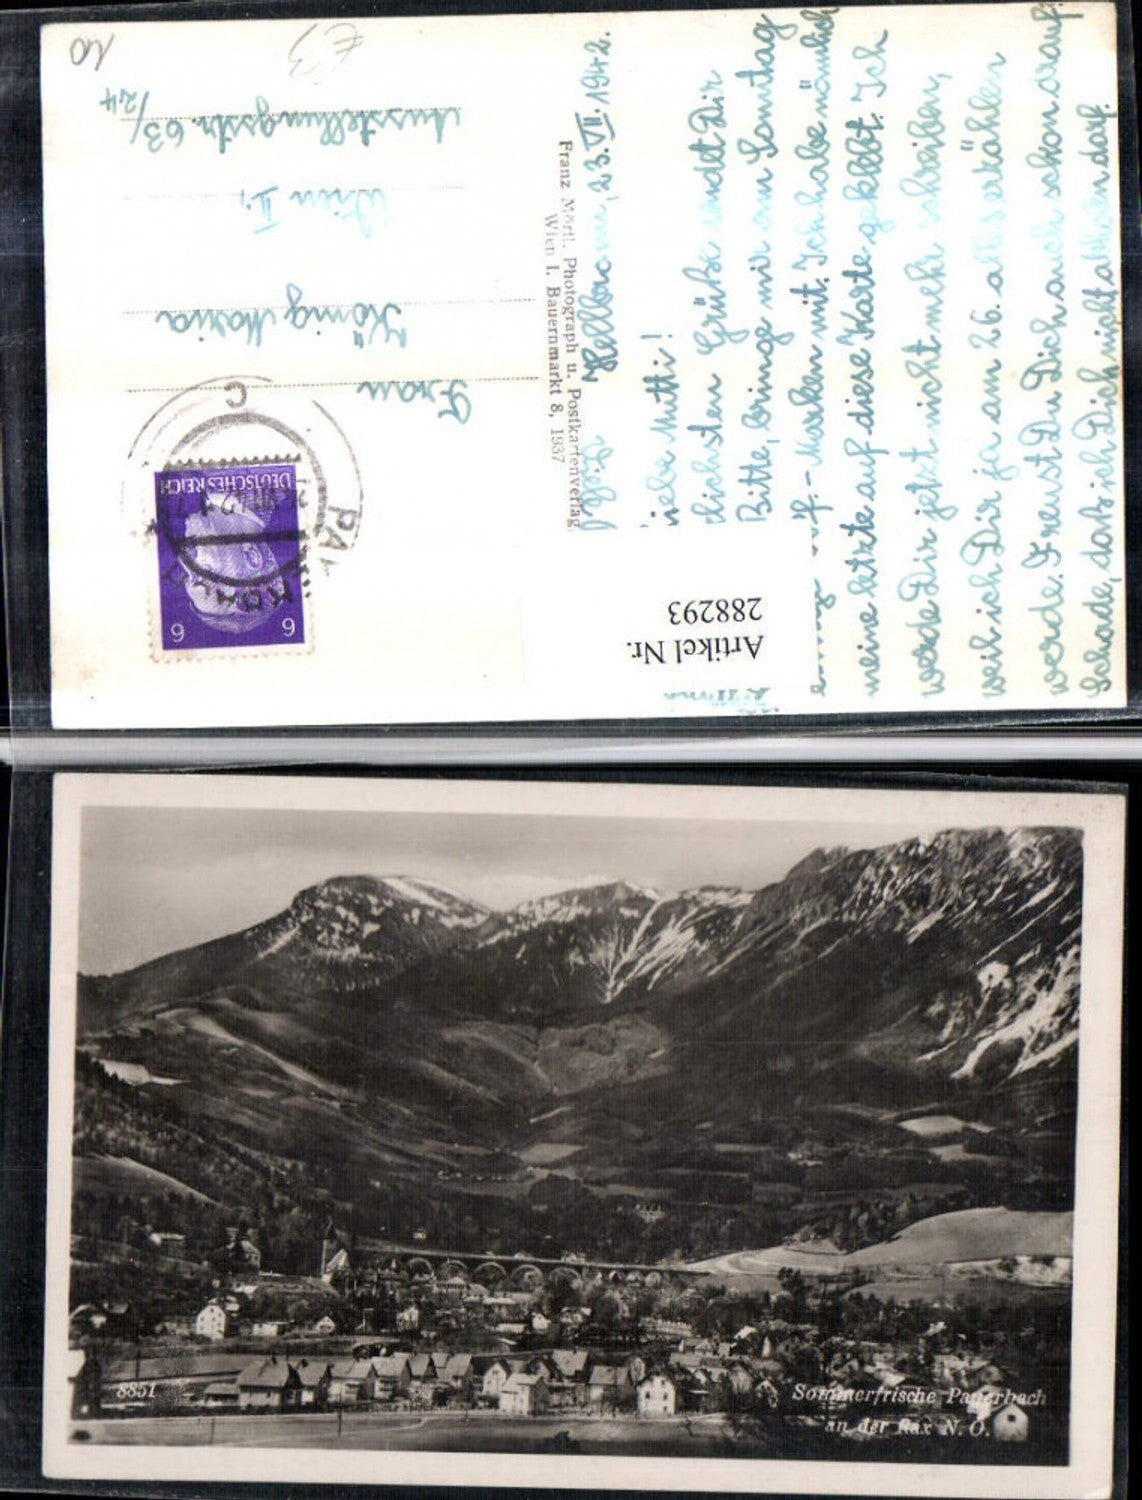 10
£3
Hellbronn, 23. VII. 1942.
Liebe Mutti!
Grüße sendet Dir
Bitte, bringe mir am Samstag
-Marken mit. Ich habe nämlich
meine letzte auf diese Karte geklebt. Ich
werde Dir jetzt nicht mehr schreiben,
weil ich Dir ja am 26. alles erzählen
werde. Freust Du Dich auch schon drauf?
Schade, daß ich Dich nicht abholen darf.
Franz Mörtl, Photograph u. Postkartenverlag
Wien I. Bauernmarkt 8, 1937
DEUTSCHES REICH
6 6
Frau
König Maria
Wien II.,
Ausstellungsstr. 63/
/24
Artikel Nr.
288293
8851
Sommerfrische Payerbach
an der Rax N. Ö.